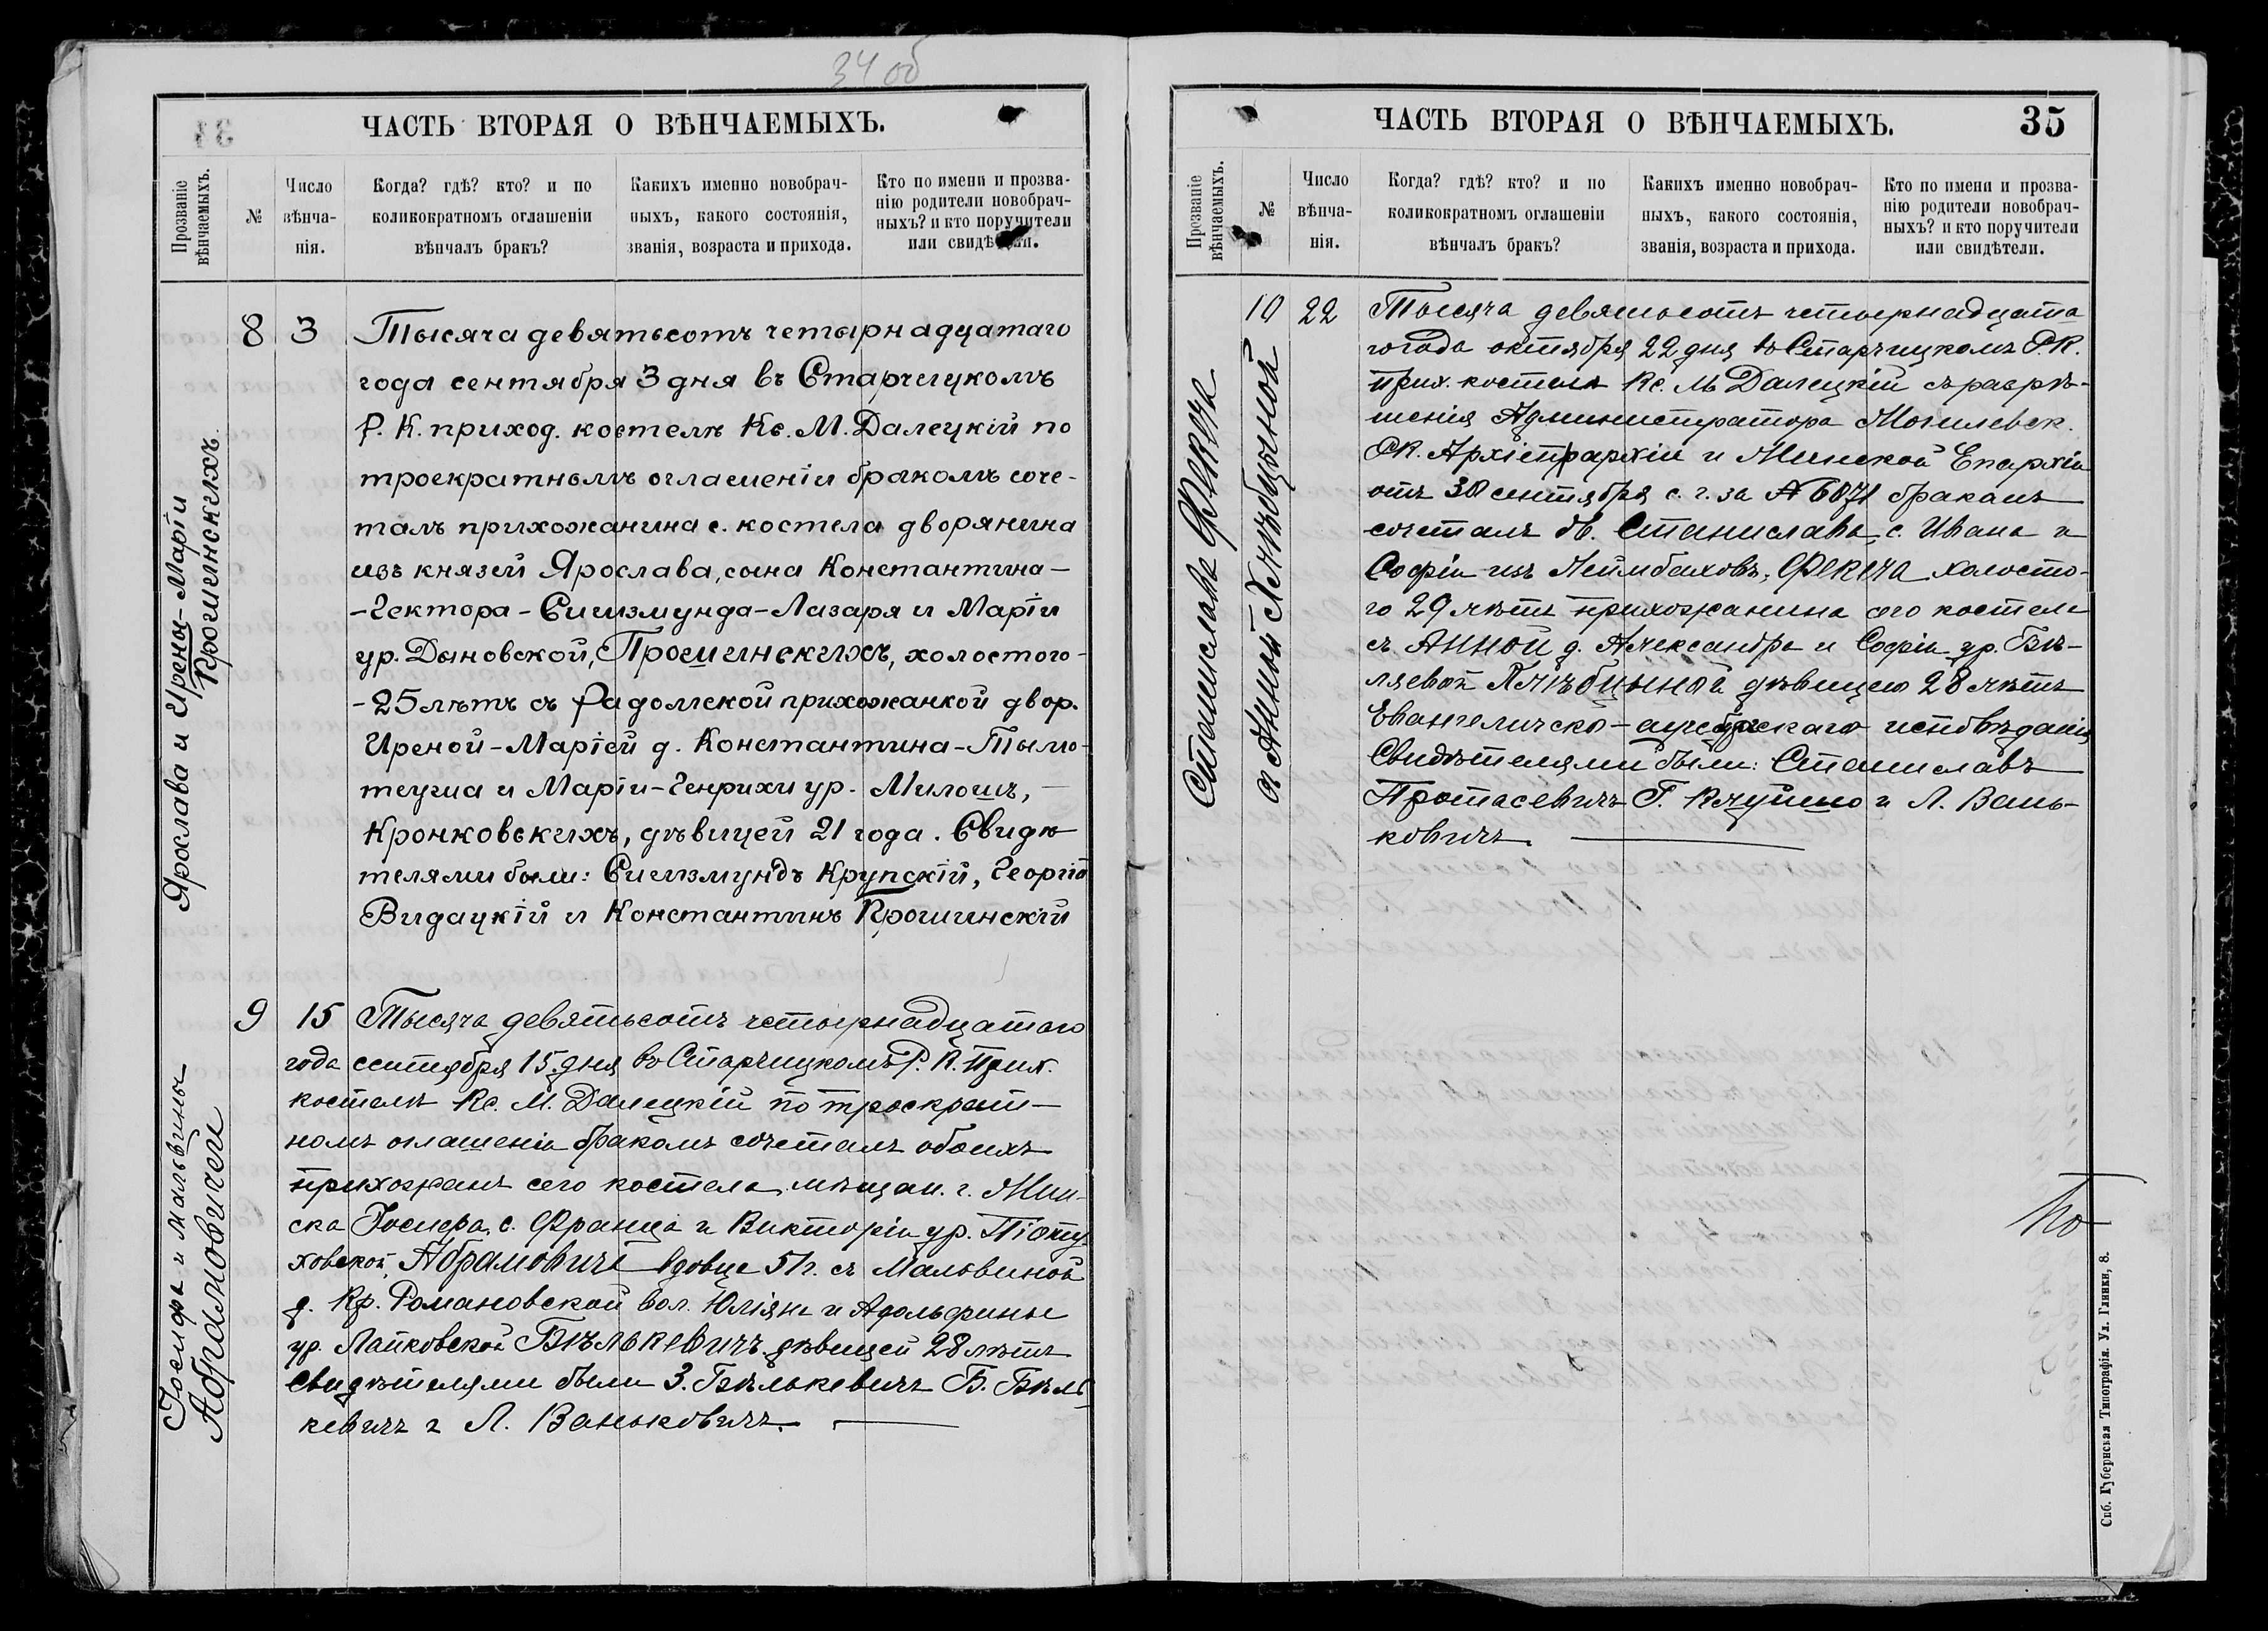 34 об
ЧАСТЬ ВТОРАЯ О ВѢНЧАЕМЫХЪ.
Прозваніе
вѣнчаемыхъ.
№
Число
вѣнча-
нія.
Когда? гдѣ? кто? и по
коликократномъ оглашеніи
вѣнчалъ бракъ?
Какихъ именно новобрач-
ныхъ, какого состоянія,
званія, возраста и прихода.
Кто по имени и прозва-
нію родители новобрач-
ныхъ? и кто поручители
или свидѣтели.
Ярослава и Ирены-Маріи
Крошинскихъ.
8 3 Тысяча девятьсотъ четырнадцатаго
года сентября 3 дня въ Старчицкомъ
Р. К. приход. костелѣ Кс. М. Далецкій по
троекратномъ оглашеніи бракомъ соче-
талъ прихожанина с. костела дворянина
изъ князей Ярослава, сына Константина-
-Гектора-Сигизмунда-Лазаря и Маріи
ур. Дыновской, Крошинскихъ, холостого-
-25 лѣтъ съ Радомской прихожанкой двор.
Иреной-Маріей д. Константина-Тымо-
теуша и Маріи-Генрихи ур. Милошъ,
Кронковскихъ, дѣвицей 21 года. Свидѣ
телями были: Сигизмундъ Крупскій, Георгій
Видацкій и Константинъ Крошинскій
Іосифа и Мальвины
Абрамовичей
9 15 Тысяча девятьсотъ четырнадцатаго
года сентября 15 дня въ Старчицкомъ Р. К. прих.
костелѣ Кс. М. Далецкій по троекрат-
номъ оглашеніи бракомъ сочеталъ обоихъ
прихожанъ сего костела мѣщан. г. Мин-
ска Іосифа, с. Франца и Викторіи ур. Піоту-
ховской, Абрамовичъ вдовца 51 г. съ Мальвиной
д. Кр. Романовской вол. Юліяна и Адольфины
ур. Лайковской Бѣлькевичъ дѣвицей 28 лѣтъ
Свидѣтелями были З. Бѣлькевичъ Б. Бѣль
кевичъ и Л. Ваньковичъ.
ЧАСТЬ ВТОРАЯ О ВѢНЧАЕМЫХЪ.
35
Прозваніе
вѣнчаемыхъ.
№
Число
вѣнча-
нія.
Когда? гдѣ? кто? и по
коликократномъ оглашеніи
вѣнчалъ бракъ?
Какихъ именно новобрач-
ныхъ, какого состоянія,
званія, возраста и прихода.
Кто по имени и прозва-
нію родители новобрач-
ныхъ? и кто поручители
или свидѣтели.
Станислава Фекеча
съ Анной Хлѣбцыной
10 22 Тысяча девятьсотъ четырнадцата
го года октября 22 дня въ Старчицкомъ Р. К.
прих. костелѣ Кс. М Далецкій съ разрѣ-
шенія Администратора Могилевск.
Р К. Архіепархіи и Минской Епархіи
отъ 30 сентября с. г. за № 6071 бракомъ
сочеталъ дв. Станислава, с. Ивана и
Софіи изъ Неймбаховъ, Фекеча холосто-
го 29 лѣтъ прихожанина сего костела
съ Анной д. Александра и Софіи ур. Бѣ-
ляевой Хлѣбцыной дѣвицею 28 лѣтъ
Евангелическо-аугсбургскаго исповѣданія
Свидѣтелями были: Станиславъ
Протасевичъ Г. и Л. Вань-
ковичъ.
Спб. Губернская Типографія. Ул. Глинки, 8.